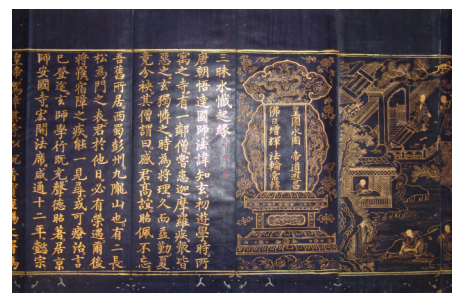 皇圖永固　帝道遐昌
佛日增輝　法輪常轉
三昧水懺起緣
唐朝悟達國師法諱知玄初遊學時所
寓之寺有一鄰僧常患迦摩羅疾眾皆
惡之玄獨憐之時為將理久而益勤夏
竟分袂其僧謂曰感君高誼貽佩不忘
吾舊所居西蜀彭州九隴山也有二長
松為門之表君於他日必有學遇爾後
將獲宿障之疾能一見尋或可療治言
已登途玄師學行既充聲德昭著居京
師安國寺宏開法席咸通十二年懿宗
皇帝